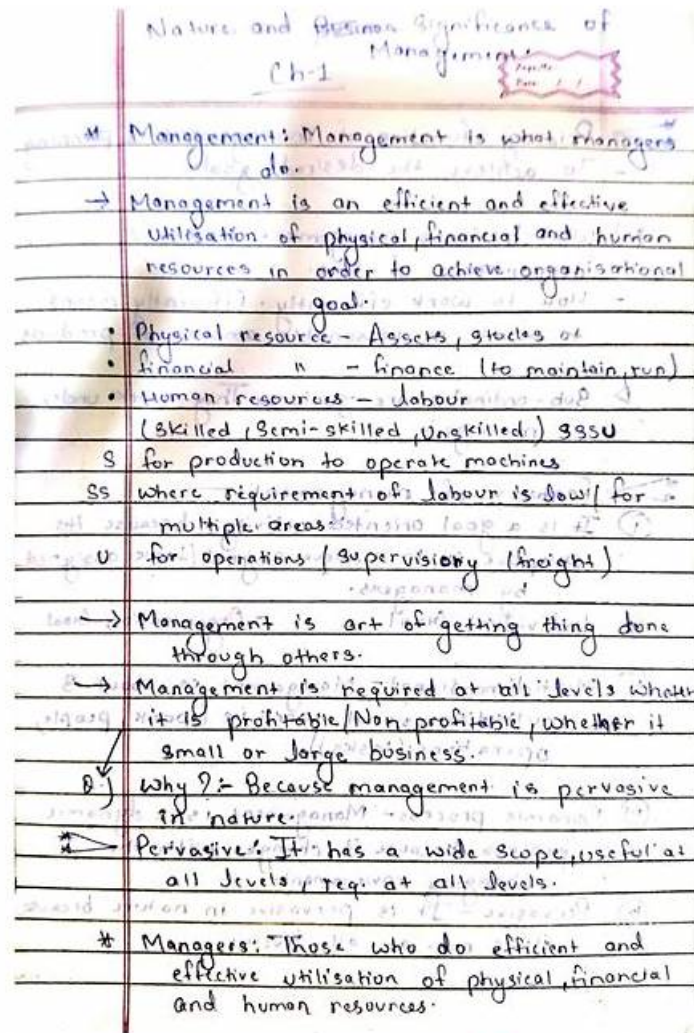 Nature and Significance of
Management
Ch-1
Page No.
Date / /
* Management: Management is what managers
do.
→ Management is an efficient and effective
utilisation of physical, financial and human
resources in order to achieve organisational
goal.
• Physical resource - Assets, stocks
• financial " - finance (to maintain, run)
• Human resources - labour
(Skilled, Semi-skilled, Unskilled) SSSU
S for production to operate machines
SS where requirement of labour is low/ for
multiple areas
U for operations / supervisiony (freight)
→ Management is art of getting thing done
through others.
→ Management is required at all levels whater
it is profitable/Non profitable, whether it
small or large business.
Q) Why?:- Because management is pervasive
in nature.
Pervasive: It has a wide scope, useful at
all levels, req. at all levels.
* Managers: Those who do efficient and
effective utilisation of physical, financial
and human resources.